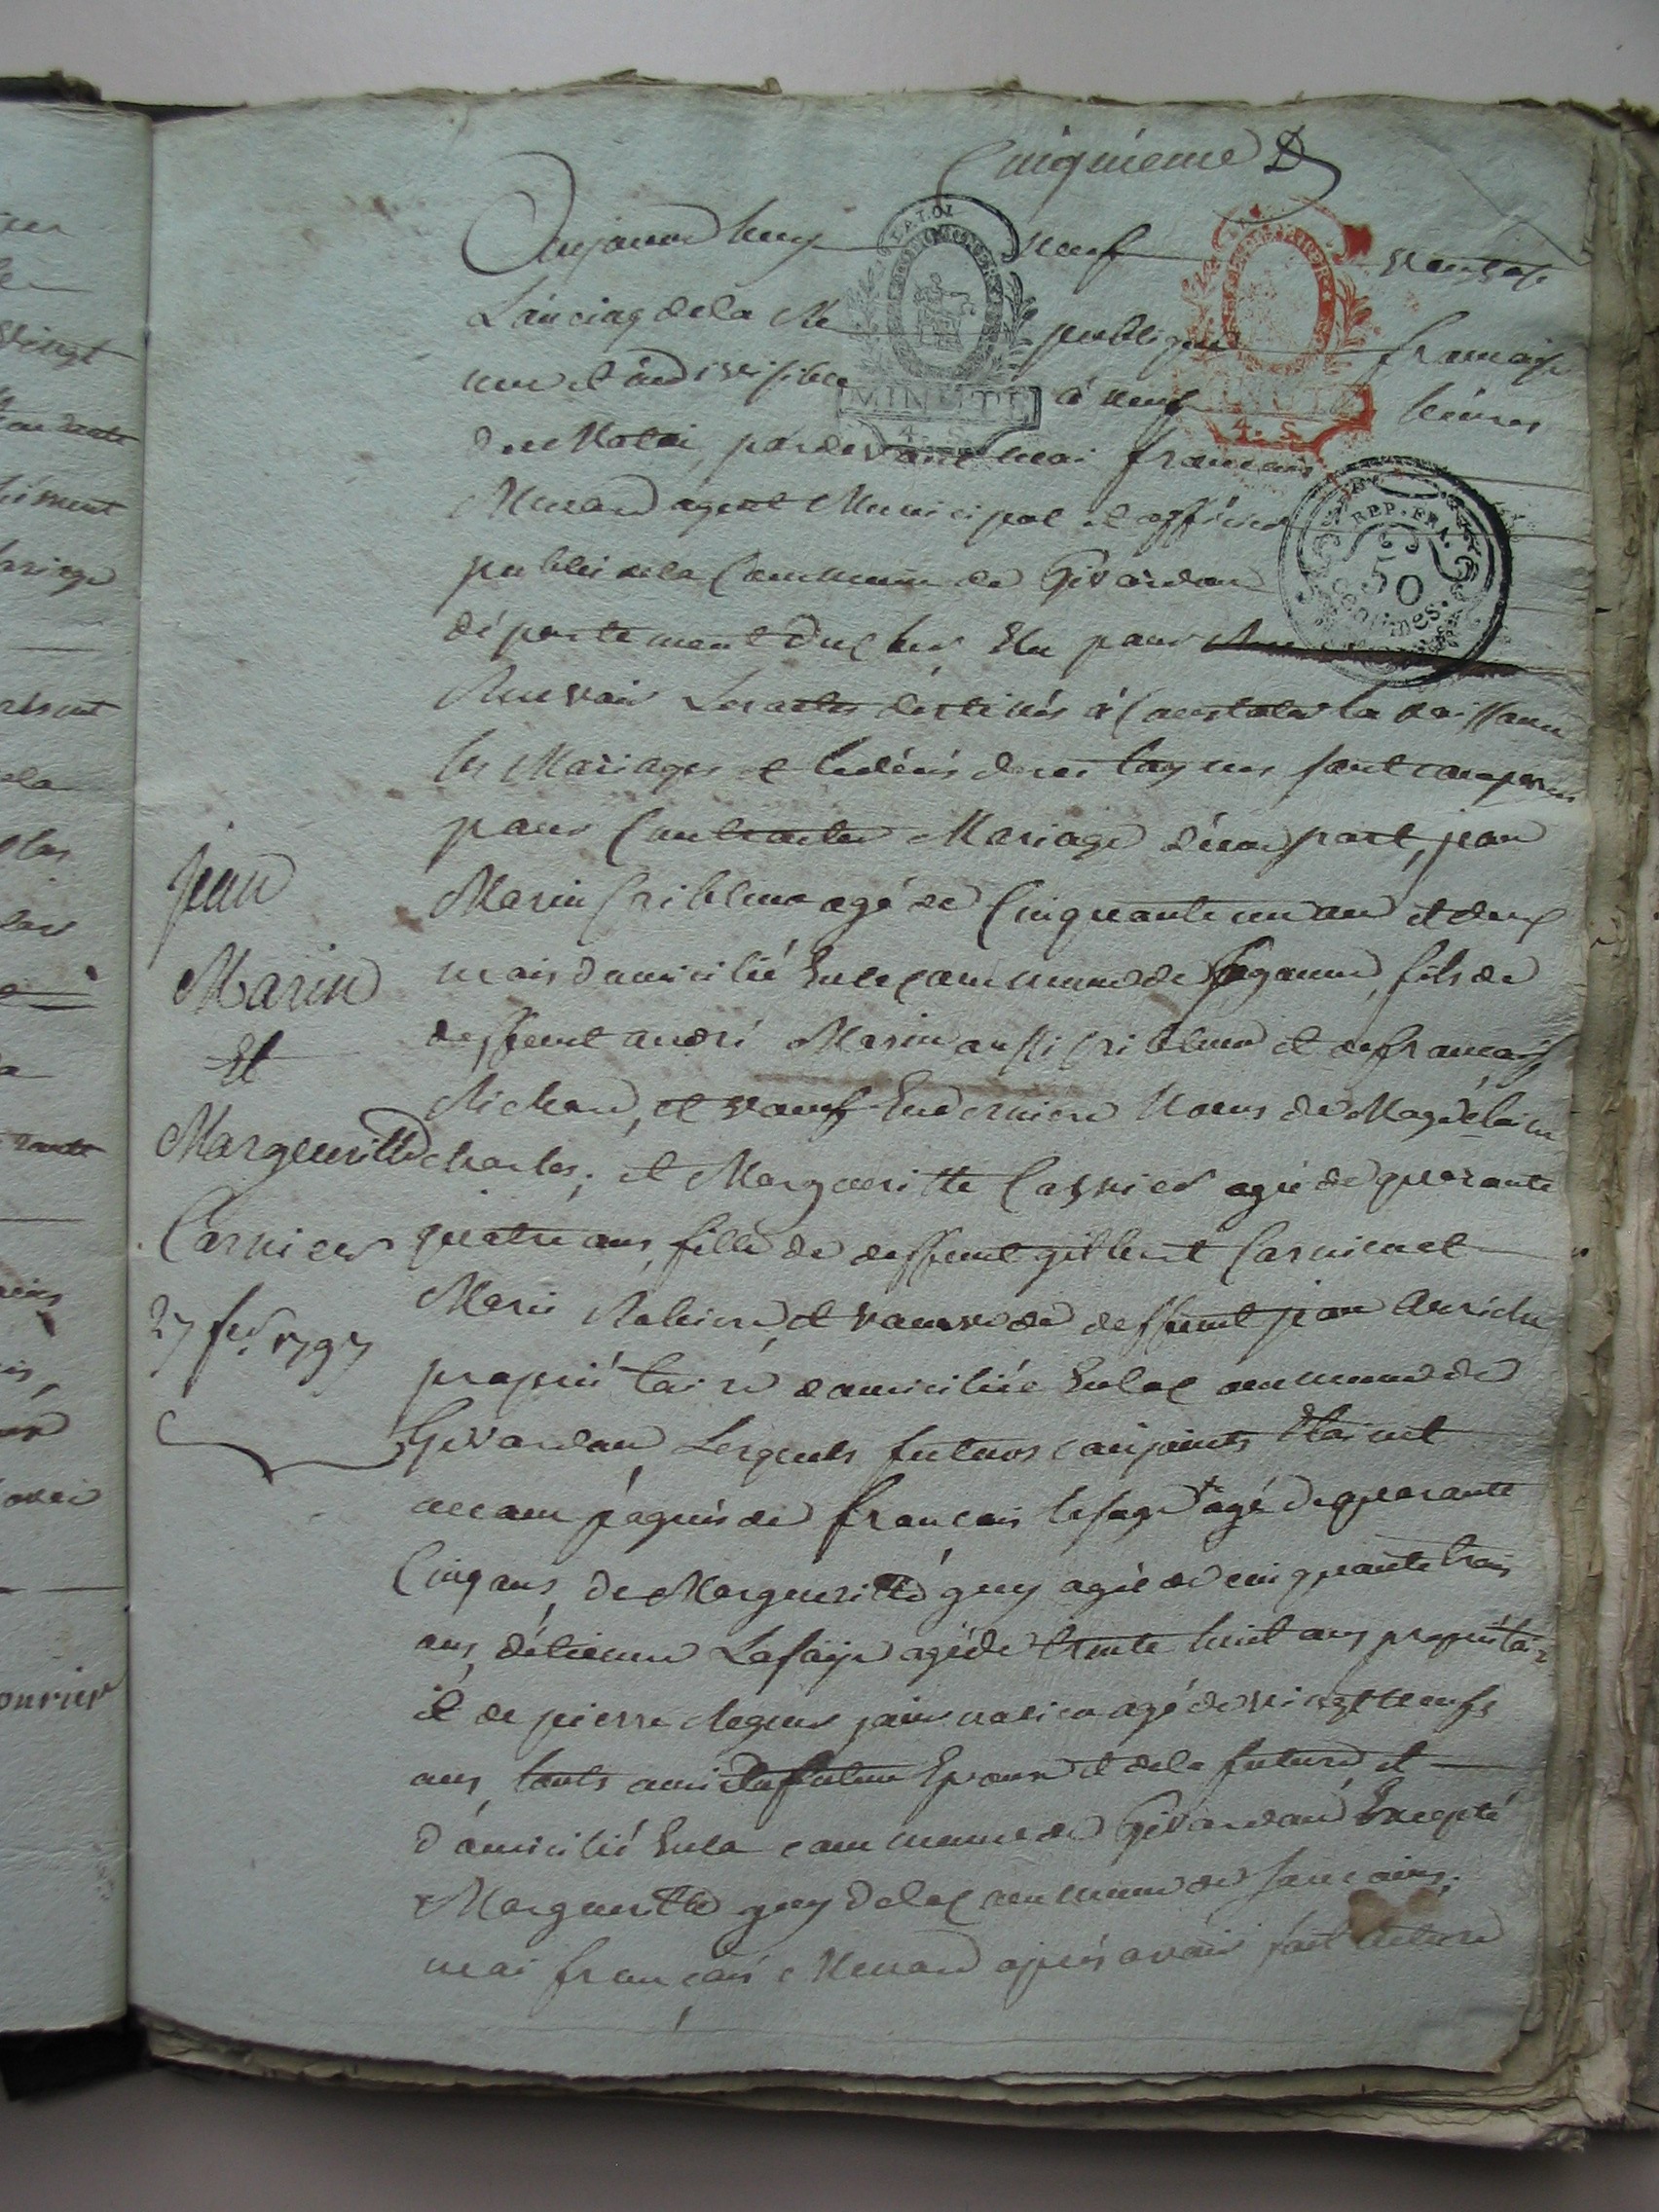 Cinquieme
Aujourd huy neuf ventose
L'an cinq de la Re publique francaise
une et indivisible à neuf heures
du Matin, pardevant moi francois
Menard agent Municipal et officier
public de la Commune de Givardon
département du Cher Elu pour
Recevoir Les actes destinés à Constater la naissance
les Mariages et les décés des citoyens sont comparus
pour Contracter Mariage d'une part, jean
Marin Cribleur agé de Cinquante un ans et deux
mois domicilié En la Commune de Sagonne, fils de
deffunt andré Marin aussi Cribleur et de francoise
Richard, et veuf En derniere Noces de Magdelaine
Charles; et Margueritte Carnier agée de quarante
quatre ans, fille de deffunt gilbert Carnier et
Marie et veuve de deffunt jean
propriétaire domiciliée En la Commune de
Givardon, Lesquels futurs conjoints Etaient
accompagnés de francois lesage agé de quarante
Cinq ans, de Margueritte guy agée de cinquante trois
ans, d'étienne agé de trente huit ans propriétaire
et de pierre agé de vingt neuf
ans, touts amis du futur Epoux et de la future et
domicilié En la commune de Givardon Excepté
Margueritte guy de la Commune de Sancoins,
moi francois Menard après avoir fait lecture
jean
Marin
Et
Margueritte
Carnier
27 fer 1797
LA LOI
MINUTE
4. S.
MINUTE
4. S.
REP. FRA.
50
Centimes.
vingt